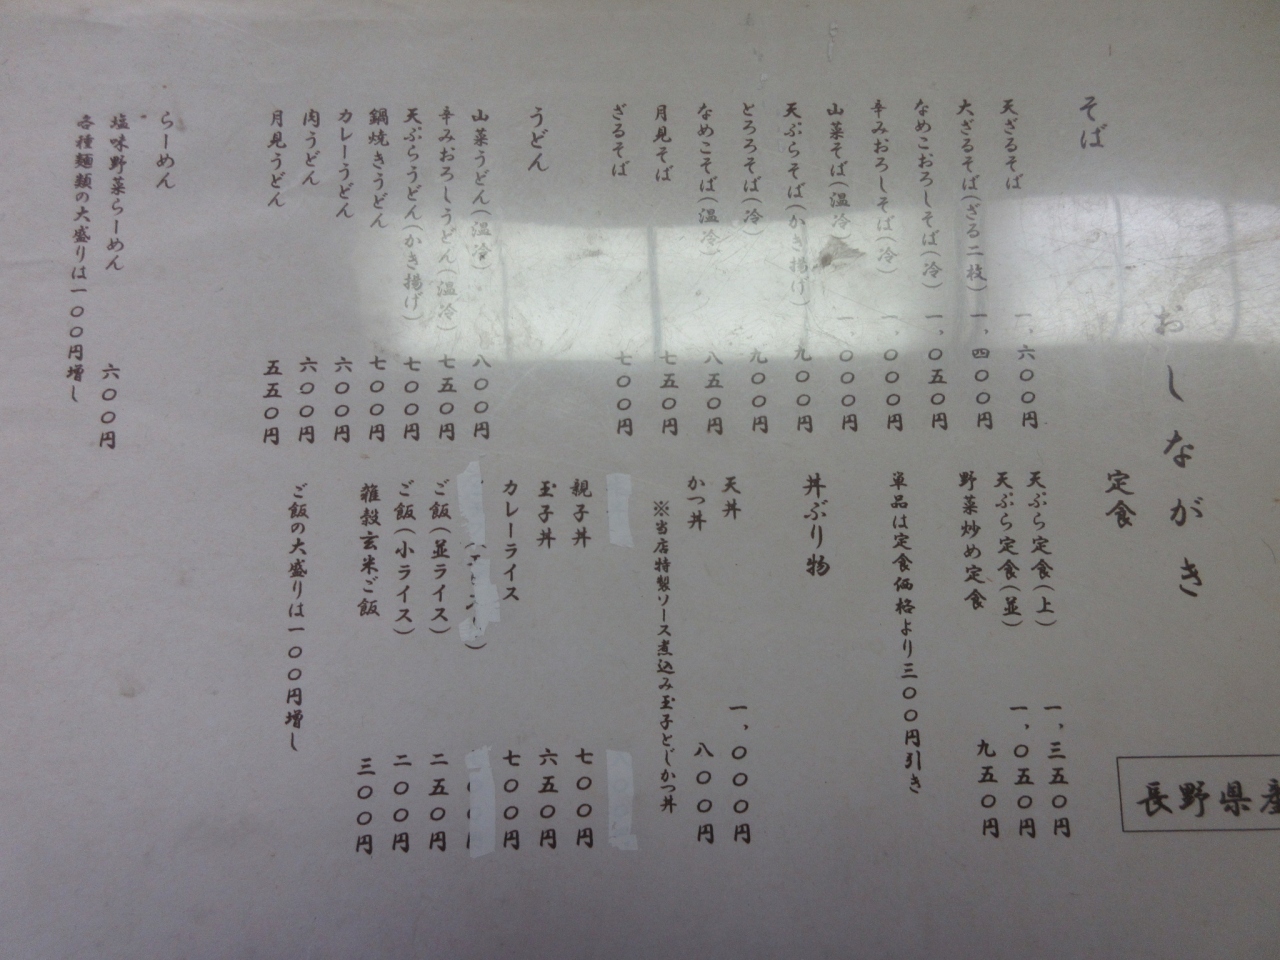 おしながき
そば
天ざるそば 一、六〇〇円
大ざるそば(ざる二枚) 一、四〇〇円
なめこおろしそば(冷) 一、〇五〇円
辛みおろしそば(冷) 一、〇〇〇円
山菜そば(温冷) 一、〇〇〇円
天ぷらそば(かき揚げ) 九〇〇円
とろろそば(冷) 九〇〇円
なめこそば(温冷) 八五〇円
月見そば 七五〇円
ざるそば 七〇〇円
うどん
山菜うどん(温冷) 八〇〇円
辛みおろしうどん(温冷) 七五〇円
天ぷらうどん(かき揚げ) 七〇〇円
鍋焼きうどん 七〇〇円
カレーうどん 六〇〇円
肉うどん 六〇〇円
月見うどん 五五〇円
らーめん
塩味野菜らーめん 六〇〇円
各種麺類の大盛りは一〇〇円増し
定食
天ぷら定食(上) 一、三五〇円
天ぷら定食(並) 一、〇五〇円
野菜炒め定食 九五〇円
単品は定食価格より三〇〇円引き
丼ぶり物
天丼 一、〇〇〇円
かつ丼 八〇〇円
※当店特製ソース煮込み玉子とじかつ丼
親子丼 七〇〇円
玉子丼 六五〇円
カレーライス 七〇〇円
ご飯(並ライス) 二五〇円
ご飯(小ライス) 二〇〇円
雑穀玄米ご飯 三〇〇円
ご飯の大盛りは一〇〇円増し
長野県産